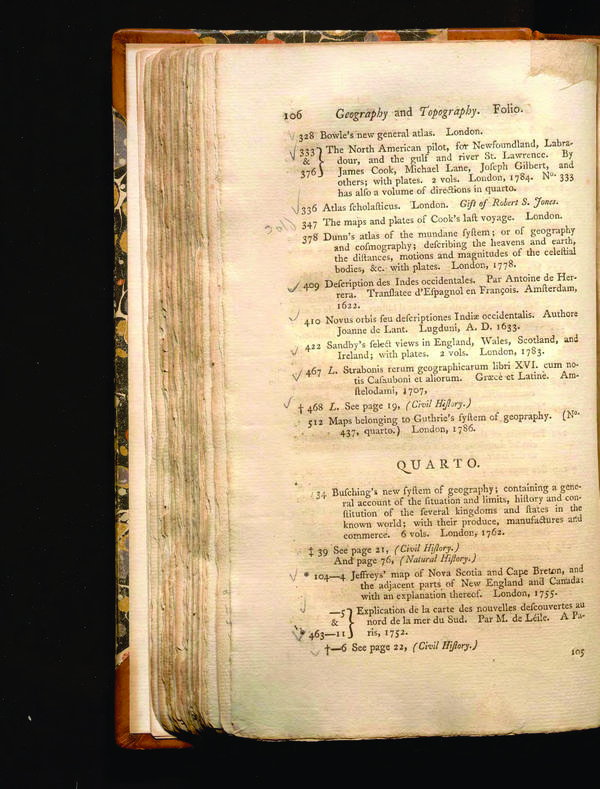 106 Geography and Topography. Folio.
328 Bowle's new general atlas. London.
333 The North American pilot, for Newfoundland, Labra-
& dour, and the gulf and river St. Lawrence. By
376 James Cook, Michael Lane, Joſeph Gilbert, and
others; with plates. 2 vols. London, 1784. Nº. 333
has alſo a volume of directions in quarto.
336 Atlas ſcholaſticus. London. Gift of Robert S. Jones.
347 The maps and plates of Cook's laſt voyage. London.
378 Dunn's atlas of the mundane ſyſtem; or of geography
and coſmography; deſcribing the heavens and earth,
the diſtances, motions and magnitudes of the celeſtial
bodies, &c. with plates. London, 1778.
409 Deſcription des Indes occidentales. Par Antoine de Her-
rera. Tranſlatee d'Eſpagnol en François. Amſterdam,
1622.
410 Novus orbis ſeu deſcriptiones Indiæ occidentalis. Authore
Joanne de Lant. Lugduni, A. D. 1633.
422 Sandby's ſelect views in England, Wales, Scotland, and
Ireland; with plates. 2 vols. London, 1783.
467 L. Strabonis rerum geographicarum libri XVI. cum no-
tis Caſauboni et aliorum. Græcè et Latinè. Am-
ſtelodami, 1707,
† 468 L. See page 19, (Civil Hiſtory.)
512 Maps belonging to Guthrie's ſyſtem of geopraphy. (Nº.
437, quarto.) London, 1786.
QUARTO.
34 Buſching's new ſyſtem of geography; containing a gene-
ral account of the ſituation and limits, hiſtory and con-
ſtitution of the ſeveral kingdoms and ſtates in the
known world; with their produce, manufactures and
commerce. 6 vols. London, 1762.
‡ 39 See page 21, (Civil Hiſtory.)
And page 76, (Natural Hiſtory.)
* 104—4 Jeffreys' map of Nova Scotia and Cape Breton, and
the adjacent parts of New England and Canada:
with an explanation thereof. London, 1755.
—5 Explication de la carte des nouvelles deſcouvertes au
& nord de la mer du Sud. Par M. de Léile. A Pa-
* 463—11 ris, 1752.
†—6 See page 22, (Civil Hiſtory.)
105